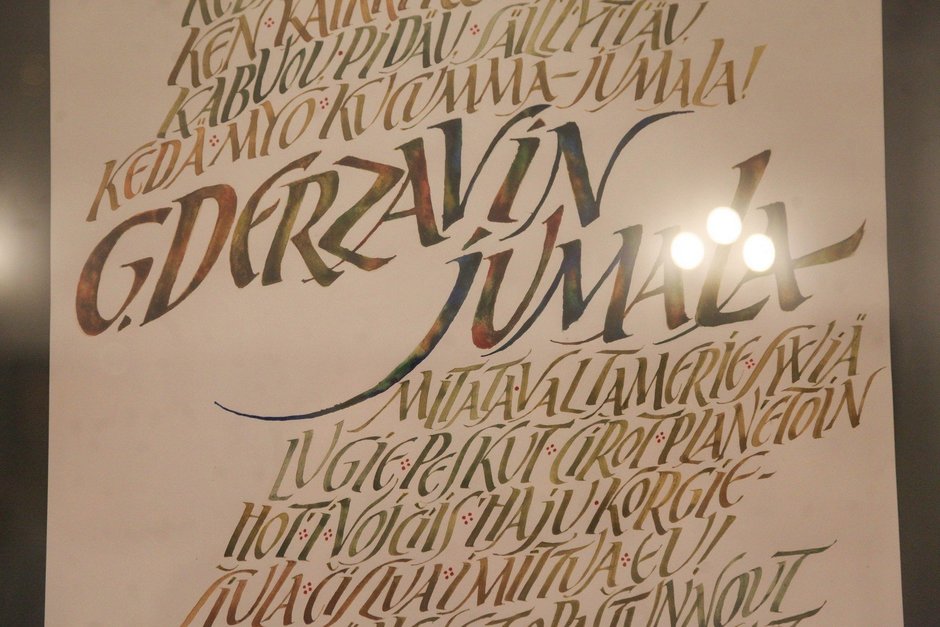 KEN KAIKKI
KABUOU, PIDÄU, SÄILYTTÄU,
KEDÄ MYÖ KUCUMMA – JUMALA!
G. DERZAVIN
JUMALA
MITATA VALTAMERIE SYVIÄ
LUGIE PESKUT ČIROT PLANIETOIN
HOTI VOJČIS' HAJU KORGIE –
ŠIULA ČISLUA I MITTUA EU!